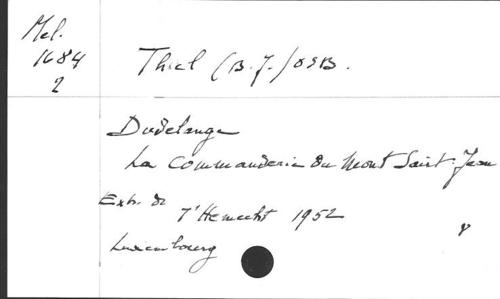 Mel.
1684
2
Thiel (B.J.) OSB.
Dudelange
La Commanderie du Mont Saint-Jean
Extr. de
T'Hemecht 1952
Luxembourg
8